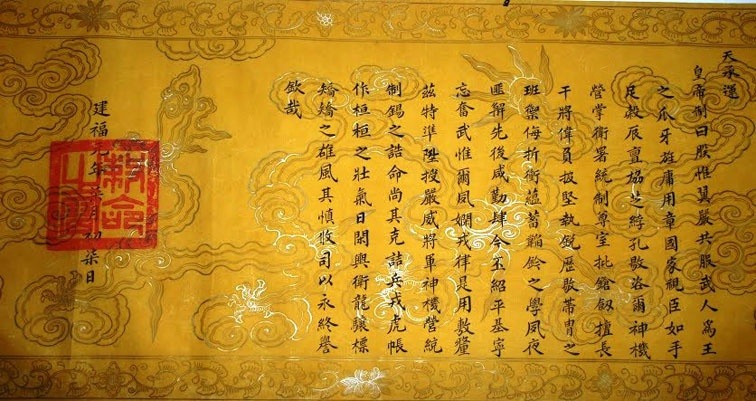 天承運
皇帝制曰朕惟翼嚴共服武人爲王
之爪牙庸用章國家視臣如手
足穀辰亶協之綍孔敭咨爾神機
營掌衛署統制尊室批鎗劔擅長
干將偉員披堅執銳歷敭冑之
班禦侮折衝蘊蓄韜鈐之學夙夜
匪懈先後咸勤肆今丕紹平基寧
忘奮武惟爾夙嫻戎律是用敷釐
茲特準陞授嚴威將軍神機營統
制錫之誥命尚其克詰兵戎虎帳
作桓桓之壯氣日閑輿衛龍驤標
矯矯之雄風其慎攸司以永終譽
欽哉
建福元年月初柒日
敕命之寶